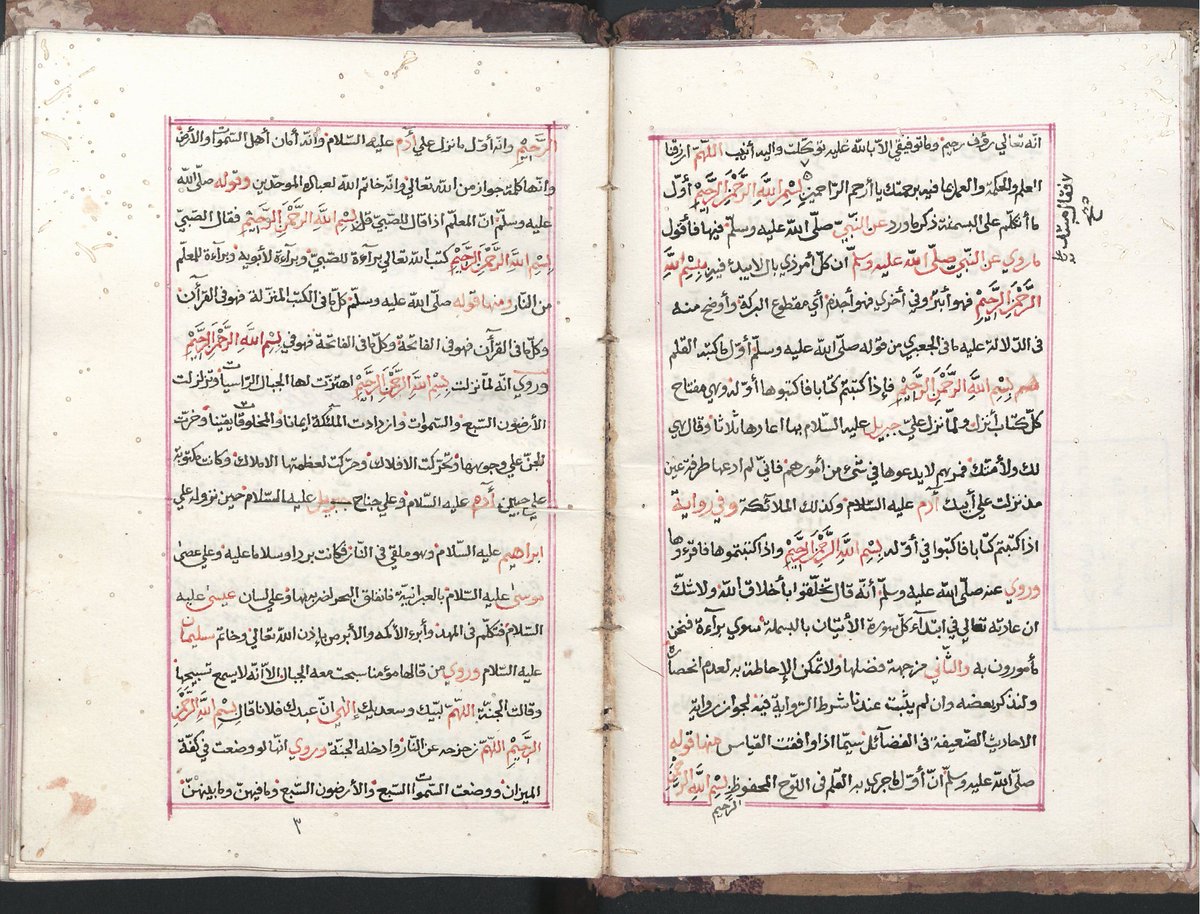 انه تعالى رؤف رحيم وما توفيقي الا بالله عليه توكلت واليه أنيب اللهم ارزقنا
العلم والحكمة والعمل بما فيه برحمتك يا أرحم الراحمين بسم الله الرحمن الرحيم أول
ما أتكلم على البسملة ذكر ما ورد عن النبي صلى الله عليه وسلم فيها فأقول
ما روي عن النبي صلى الله عليه وسلم ان كل أمر ذي بال لا يبدء فيه ببسم الله
الرحمن الرحيم فهو أبتر وفي أخرى فهو أجذم أي مقطوع البركة وأوضح منه
في الدلالة عليه ما في الجعبري من قوله صلى الله عليه وسلم أول ما كتبه القلم
بسم الله الرحمن الرحيم فإذا كتبتم كتابا فاكتبوها أوله وهي مفتاح
كل كتاب أنزل ولما نزل علي جبريل عليه السلام بها اعادها ثلاثا وقال هي
لك ولأمتك فمرهم لا يدعوها في شيء من أمورهم فاني لم ادعها طرفة عين
مذ نزلت على أبيك آدم عليه السلام وكذلك الملائكة وفي رواية
اذا كتبتم كتابا فاكتبوا في أوله بسم الله الرحمن الرحيم واذا كتبتموها فاقرءوها
وروي عنه صلى الله عليه وسلم أنه قال تخلقوا بأخلاق الله ولا شك
ان عادته تعالى في ابتداء كل سورة الأتيان بالبسملة سوى برآءة فنحن
مأمورون به والثاني من جهة فضلها ولا تمكن الإحاطة به لعدم انحصاره
ولنذكر بعضه وان لم يثبت عندنا شرط الرواية فيه لجواز رواية
الاحاديث الضعيفة في الفضائل سيما اذا وافقت القياس منها قوله
صلى الله عليه وسلم ان أول ما جرى به القلم في اللوح المحفوظ بسم الله الرحمن
الرحيم
الرحيم وانه أول ما نزل على آدم عليه السلام وانه أمان أهل السموات والأرض
وانها كلمة جواز من الله تعالى وانه خاتم الله لعباده الموحدين وقوله صلى الله
عليه وسلم ان المعلم اذا قال للصبي قل بسم الله الرحمن الرحيم فقال الصبي
بسم الله الرحمن الرحيم كتب الله تعالى برآءة للصبي وبرآءة لأبويه وبرآءة للمعلم
من النار ومنها قوله صلى الله عليه وسلم كل ما في الكتب المنزلة فهو في القرآن
وكل ما في القرآن فهو في الفاتحة وكل ما في الفاتحة فهو في بسم الله الرحمن الرحيم
وروي انه لما نزلت بسم الله الرحمن الرحيم اهتزت لها الجبال الراسيات وتزلزلت
الأرضون السبع والسموات وازدادت الملئكة ايمانا والمخلوقات يقينا وخرت
الجن على وجوهها وتحركت الافلاك وحركت لعظمتها الاملاك وكانت مكتوبة
على جبين آدم عليه السلام وعلى جناح جبريل عليه السلام حين نزوله على
ابراهيم عليه السلام وهو ملقى في النار فكانت بردا وسلاما عليه وعلى عصى
موسى عليه السلام بالعبرانية فانفلق البحر لضربها وعلى لسان عيسى عليه
السلام فتكلم في المهد وأبرء الأكمه والأبرص بإذن الله تعالى وخاتم سليمان
عليه السلام وروي من قالها مؤمنا سبحت معه الجبال الا أنه لا يسمع تسبيحها
وقالت الجنة اللهم لبيك وسعديك إلهي ان عبدك فلانا قال بسم الله الرحمن
الرحيم اللهم زحزحه عن النار وادخله الجنة وروي انها لو وضعت في كفة
الميزان ووضعت السموات السبع والأرضون السبع وما فيهن وما بينهن
٣